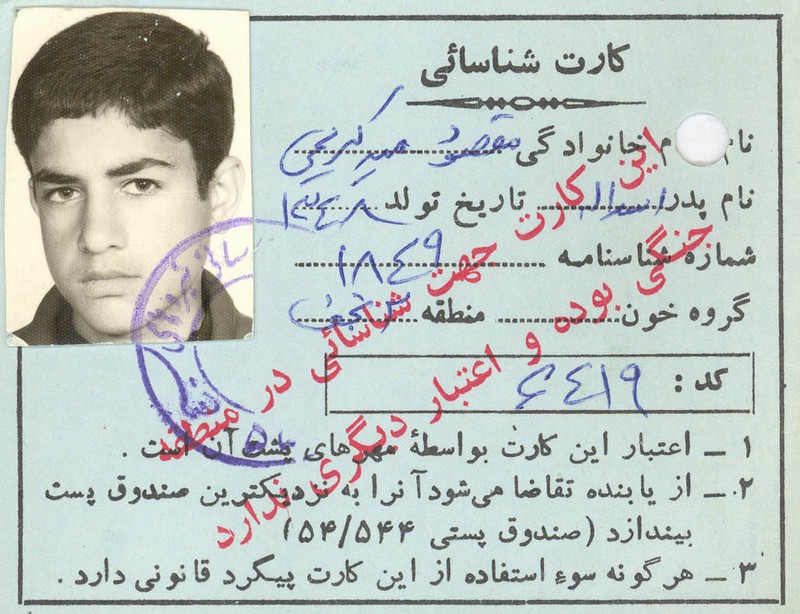 کارت شناسائی
نام خانوادگی مقصود میرکریمی
نام پدر اسداله تاریخ تولد ۱۳۴۸
شماره شناسنامه ۱۸۴۹
گروه خون منطقه
کد : ۶۴۱۹
۱ ـ اعتبار این کارت بواسطهٔ مهرهای پشت آن است .
۲ ـ از یابنده تقاضا می‌شود آنرا به نزدیکترین صندوق پست
بیندازد (صندوق پستی ۵۴/۵۴۴)
۳ ـ هرگونه سوء استفاده از این کارت پیگرد قانونی دارد .
این کارت جهت شناسائی در منطقه
جنگی بوده و اعتبار دیگری ندارد